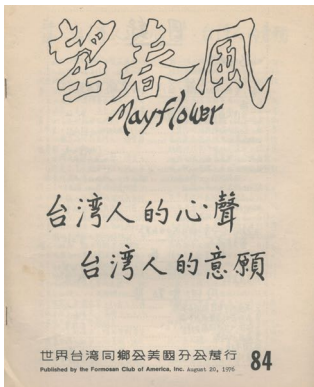 望春風
Mayflower
台湾人的心聲
台湾人的意願
世界台湾同鄉会美國分会發行 84
Published by the Formosan Club of America, Inc. August 20, 1976